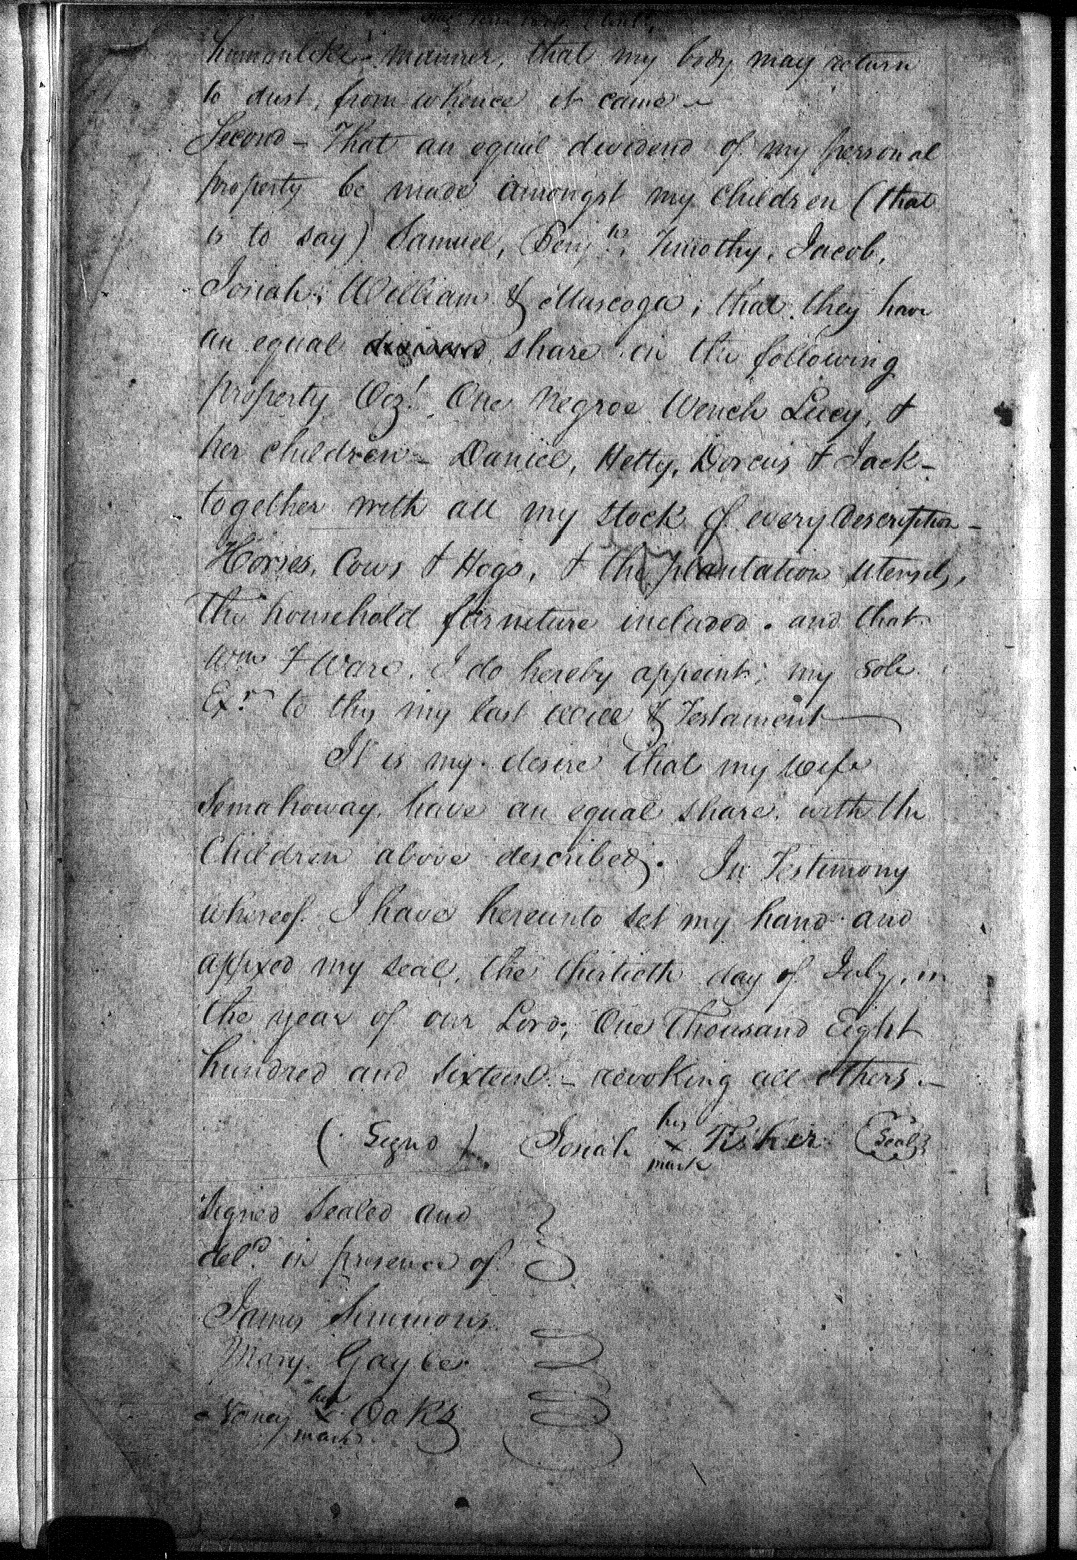 humanlike manner, that my body may return
to dust, from whence it came –
Second – That an equal dividend of my personal
property be made amongst my Children (that
is to say) Samuel, Benjn, Timothy, Jacob,
Josiah, William & Muscoga; that they have
an equal dividend share in the following
property Viz! One Negroe Wench Lucy, &
her children – Daniel, Hetty, Dorcus & Jack –
together with all my stock of every description –
Horses, Cows & Hogs, & the plantation utensils,
the household furniture included. and that
Wm F Ware. I do hereby appoint; my sole
Exr to this my last will & Testament
It is my desire that my wife
Semahoway, have an equal share, with the
Children above described. In Testimony
whereof I have hereunto set my hand and
affixed my seal, the thirtieth day of July, in
the year of our Lord; One Thousand Eight
hundred and sixteen – revoking all others. –
(Signd) Josiah his x mark Fisher Seal
Signed Sealed and
deld in presence of
James Simmons
Mary
Nancy her x mark Oaks